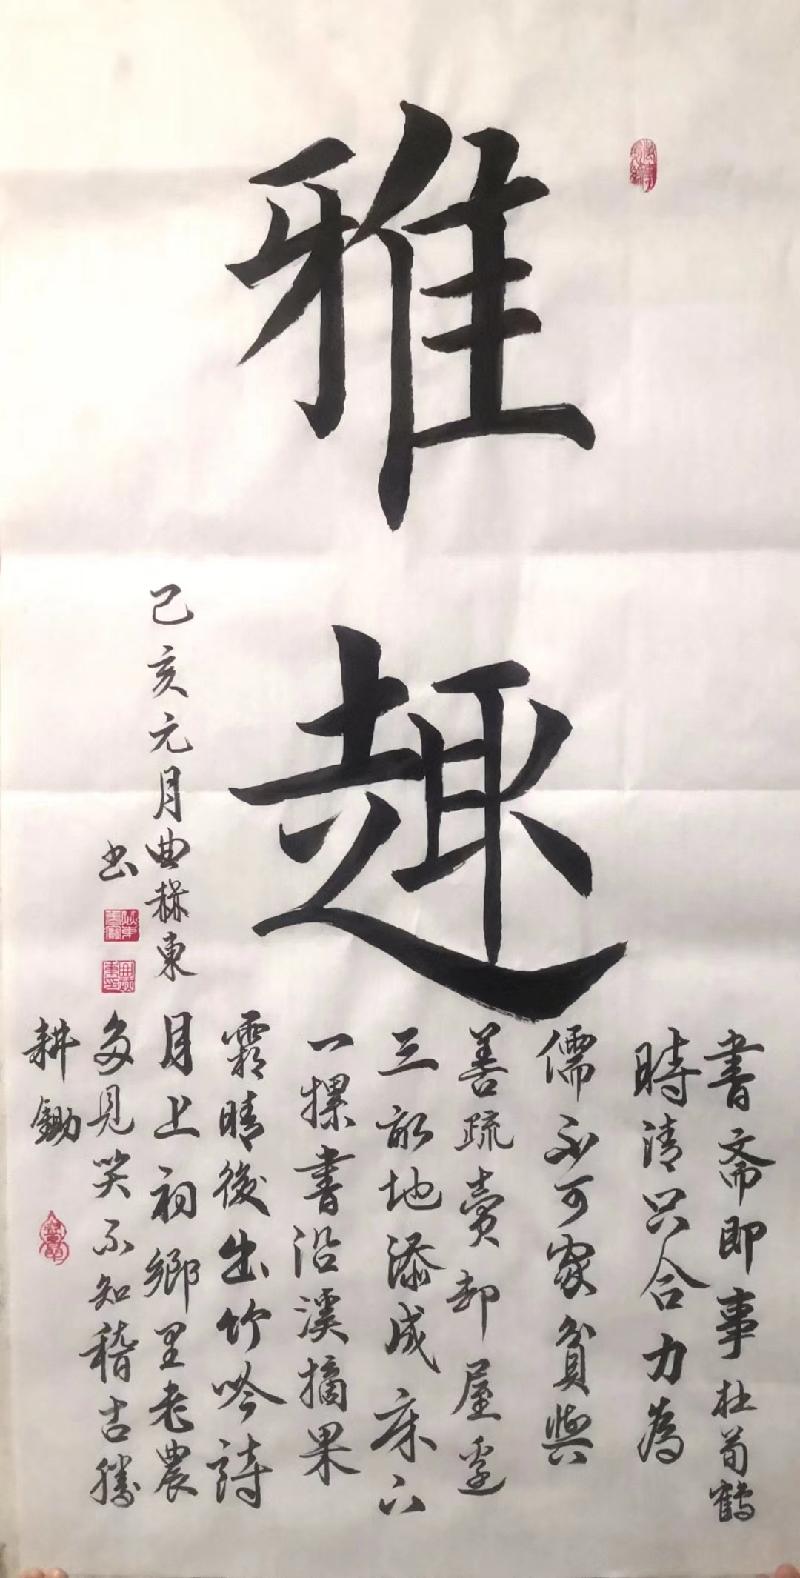 雅趣
書斋即事杜荀鶴
時清只合力為
儒不可家貧與
善疏賣却屋邊
三畝地添成床下
一摞書沿溪摘果
霜晴後出竹吟詩
月上初鄉里老農
多見笑不知稽古勝
耕鋤
己亥元月曲東
书